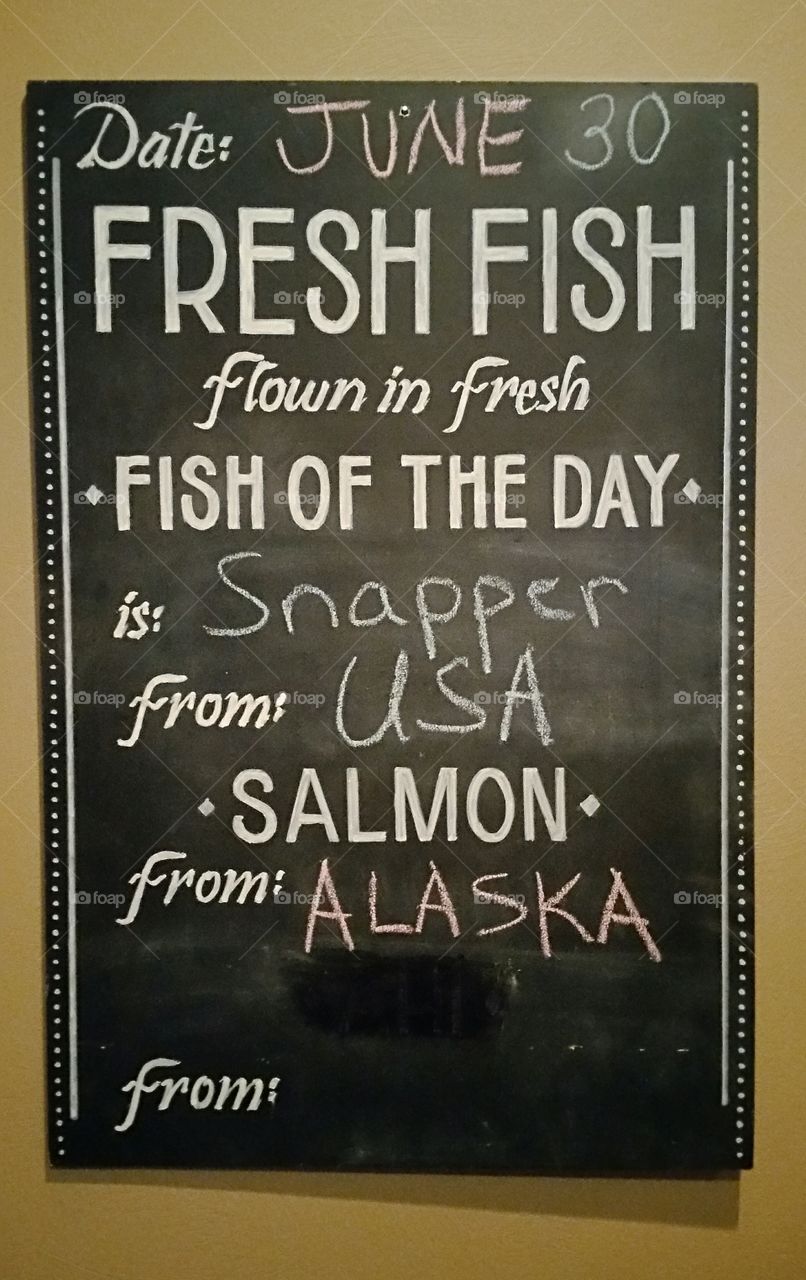 Date: JUNE 30
FRESH FISH
flown in fresh
FISH OF THE DAY
is: Snapper
from: USA
SALMON
from: ALASKA
from:
foap